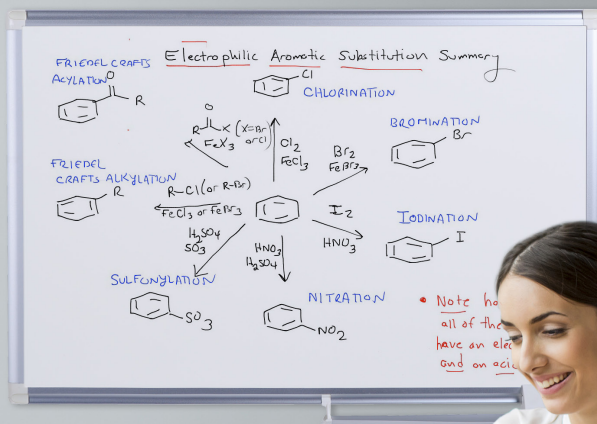 Electrophilic Aromatic Substitution Summary
FRIEDEL CRAFTS
ACYLATION
O
R
Cl
CHLORINATION
O
R X (X=Br
or Cl)
FeX3
Cl2
FeCl3
Br2
FeBr3
BROMINATION
Br
FRIEDEL
CRAFTS ALKYLATION
R
R-Cl (or R-Br)
FeCl3 or FeBr3
I2
HNO3
IODINATION
I
H2SO4
SO3
HNO3
H2SO4
SULFONYLATION
SO3
NITRATION
NO2
• Note
all of
have an
and an